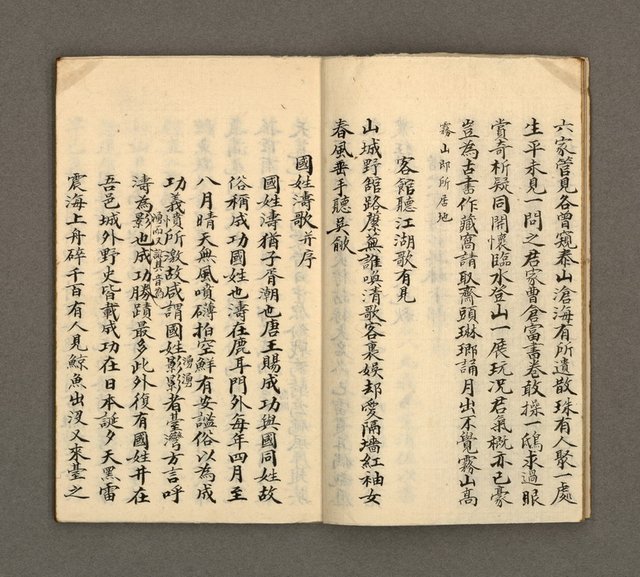 六家管見各曾窺泰山滄海有所遺散珠有人聚一處
生平未見一問之君家曹倉富書卷敢操一鴟求過眼
賞奇析疑同開懷臨水登山一展玩況君氣概亦已豪
豈為古書作藏窩請取齋頭琳瑯誦月出不覺霧山高
霧山郎所居地
客館聽江湖歌有見
山城野館路壁無誰喚清歌客裏娛却愛隔墻紅袖女
春風垂手聽吳歈
國姓濤歌并序
國姓濤猶子胥潮也唐王賜成功與國同姓故
俗稱成功國姓也濤在鹿耳門外每年四月至
八月晴天無風噴礴拍空鮮有安謐俗以為成
功義憤所激故咸謂國姓影影者臺灣方言呼
濤為影也成功勝蹟最多此外復有國姓井在
吾邑城外野史皆載成功在日本誕夕天黑雷
震海上舟碎千百有人見鯨魚出沒又來臺之